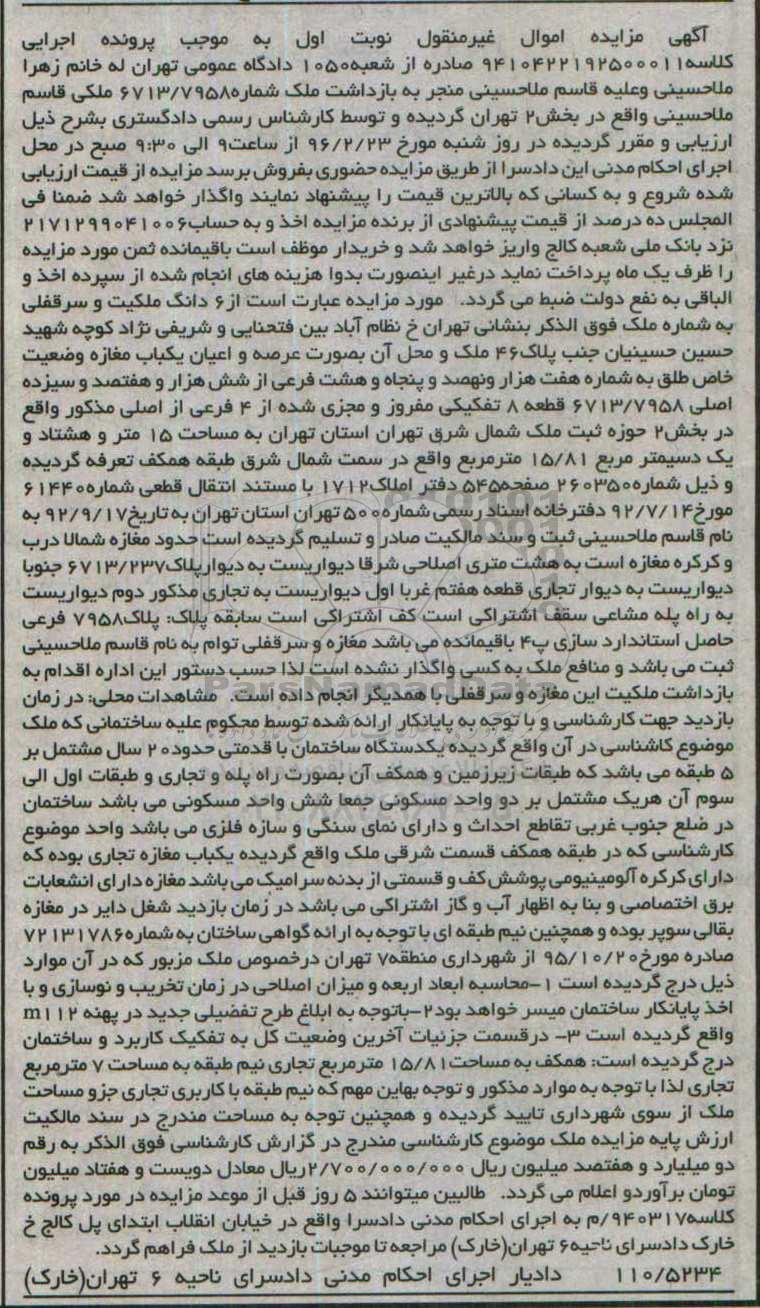 آگهی مزایده اموال غیرمنقول نوبت اول به موجب پرونده اجرایی
کلاسه۹۴۱۰۴۲۲۱۹۲۵۰۰۰۱۱ صادره از شعبه۱۰۵۰ دادگاه عمومی تهران له خانم زهرا
ملاحسینی وعلیه قاسم ملاحسینی منجر به بازداشت ملک شماره۶۷۱۳/۷۹۵۸ ملکی قاسم
ملاحسینی واقع در بخش۲ تهران گردیده و توسط کارشناس رسمی دادگستری بشرح ذیل
ارزیابی و مقرر گردیده در روز شنبه مورخ ۹۶/۲/۲۳ از ساعت۹ الی ۹:۳۰ صبح در محل
اجرای احکام مدنی این دادسرا از طریق مزایده حضوری بفروش برسد مزایده از قیمت ارزیابی
شده شروع و به کسانی که بالاترین قیمت را پیشنهاد نمایند واگذار خواهد شد ضمنا فی
المجلس ده درصد از قیمت پیشنهادی از برنده مزایده اخذ و به حساب۲۱۷۱۲۹۹۰۴۱۰۰۶
نزد بانک ملی شعبه کالج واریز خواهد شد و خریدار موظف است باقیمانده ثمن مورد مزایده
را ظرف یک ماه پرداخت نماید درغیر اینصورت بدوا هزینه های انجام شده از سپرده اخذ و
الباقی به نفع دولت ضبط می گردد. مورد مزایده عبارت است از۶ دانگ ملکیت و سرقفلی
به شماره ملک فوق الذکر بنشانی تهران خ نظام آباد بین فتحنایی و شریفی نژاد کوچه شهید
حسین حسینیان جنب پلاک۴۶ ملک و محل آن بصورت عرصه و اعیان یکباب مغازه وضعیت
خاص طلق به شماره هفت هزار ونهصد و پنجاه و هشت فرعی از شش هزار و هفتصد و سیزده
اصلی ۶۷۱۳/۷۹۵۸ قطعه ۸ تفکیکی مفروز و مجزی شده از ۴ فرعی از اصلی مذکور واقع
در بخش۲ حوزه ثبت ملک شمال شرق تهران استان تهران به مساحت ۱۵ متر و هشتاد و
یک دسیمتر مربع ۱۵/۸۱ مترمربع واقع در سمت شمال شرق طبقه همکف تعرفه گردیده
و ذیل شماره۲۶۰۳۵۰ صفحه۵۴۵ دفتر املاک۱۷۱۲ با مستند انتقال قطعی شماره۶۱۴۴۰
مورخ۹۲/۷/۱۴ دفترخانه اسناد رسمی شماره۵۰۰ تهران استان تهران به تاریخ۹۲/۹/۱۷ به
نام قاسم ملاحسینی ثبت و سند مالکیت صادر و تسلیم گردیده است حدود مغازه شمالا درب
و کرکره مغازه است به هشت متری اصلاحی شرقا دیواریست به دیوارپلاک۶۷۱۳/۲۳۷ جنوبا
دیواریست به دیوار تجاری قطعه هفتم غربا اول دیواریست به تجاری مذکور دوم دیواریست
به راه پله مشاعی سقف اشتراکی است کف اشتراکی است سابقه پلاک: پلاک۷۹۵۸ فرعی
حاصل استاندارد سازی پ۴ باقیمانده می باشد مغازه و سرقفلی توام به نام قاسم ملاحسینی
ثبت می باشد و منافع ملک به کسی واگذار نشده است لذا حسب دستور این اداره اقدام به
بازداشت ملکیت این مغازه و سرقفلی با همدیگر انجام داده است. مشاهدات محلی: در زمان
بازدید جهت کارشناسی و با توجه به پایانکار ارائه شده توسط محکوم علیه ساختمانی که ملک
موضوع کاشناسی در آن واقع گردیده یکدستگاه ساختمان با قدمتی حدود۲۰ سال مشتمل بر
۵ طبقه می باشد که طبقات زیرزمین و همکف آن بصورت راه پله و تجاری و طبقات اول الی
سوم آن هریک مشتمل بر دو واحد مسکونی جمعا شش واحد مسکونی می باشد ساختمان
در ضلع جنوب غربی تقاطع احداث و دارای نمای سنگی و سازه فلزی می باشد واحد موضوع
کارشناسی که در طبقه همکف قسمت شرقی ملک واقع گردیده یکباب مغازه تجاری بوده که
دارای کرکره آلومینیومی پوشش کف و قسمتی از بدنه سرامیک می باشد مغازه دارای انشعابات
برق اختصاصی و بنا به اظهار آب و گاز اشتراکی می باشد در زمان بازدید شغل دایر در مغازه
بقالی سوپر بوده و همچنین نیم طبقه ای با توجه به ارائه گواهی ساختان به شماره۷۲۱۳۱۷۸۶
صادره مورخ۹۵/۱۰/۲۰ از شهرداری منطقه۷ تهران درخصوص ملک مزبور که در آن موارد
ذیل درج گردیده است ۱-محاسبه ابعاد اربعه و میزان اصلاحی در زمان تخریب و نوسازی و با
اخذ پایانکار ساختمان میسر خواهد بود۲-باتوجه به ابلاغ طرح تفضیلی جدید در پهنه m۱۱۲
واقع گردیده است ۳- درقسمت جزئیات آخرین وضعیت کل به تفکیک کاربرد و ساختمان
درج گردیده است: همکف به مساحت۱۵/۸۱ مترمربع تجاری نیم طبقه به مساحت ۷ مترمربع
تجاری لذا با توجه به موارد مذکور و توجه بهاین مهم که نیم طبقه با کاربری تجاری جزو مساحت
ملک از سوی شهرداری تایید گردیده و همچنین توجه به مساحت مندرج در سند مالکیت
ارزش پایه مزایده ملک موضوع کارشناسی مندرج در گزارش کارشناسی فوق الذکر به رقم
دو میلیارد و هفتصد میلیون ریال ۲/۷۰۰/۰۰۰/۰۰۰ریال معادل دویست و هفتاد میلیون
تومان برآوردو اعلام می گردد. طالبین میتوانند ۵ روز قبل از موعد مزایده در مورد پرونده
کلاسه۹۴۰۳۱۷/م به اجرای احکام مدنی دادسرا واقع در خیابان انقلاب ابتدای پل کالج خ
خارک دادسرای ناحیه۶ تهران(خارک) مراجعه تا موجبات بازدید از ملک فراهم گردد.
۱۱۰/۵۲۳۴ دادیار اجرای احکام مدنی دادسرای ناحیه ۶ تهران(خارک)